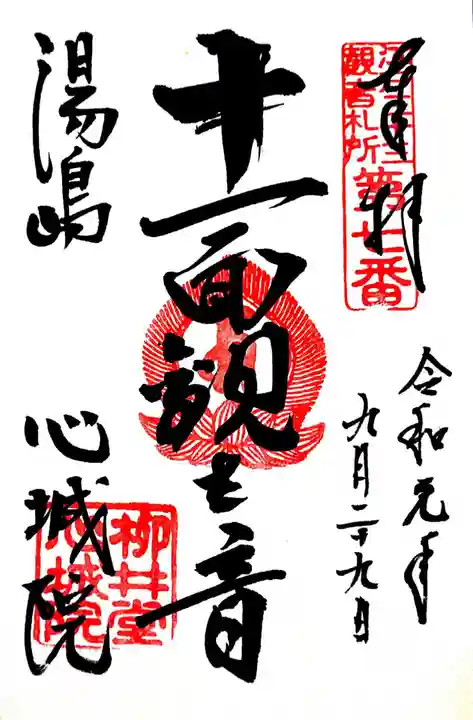 奉拝
観音札所
第七番
令和元年
九月二十九日
十一面観世音
湯島
心城院
柳井堂
心城院